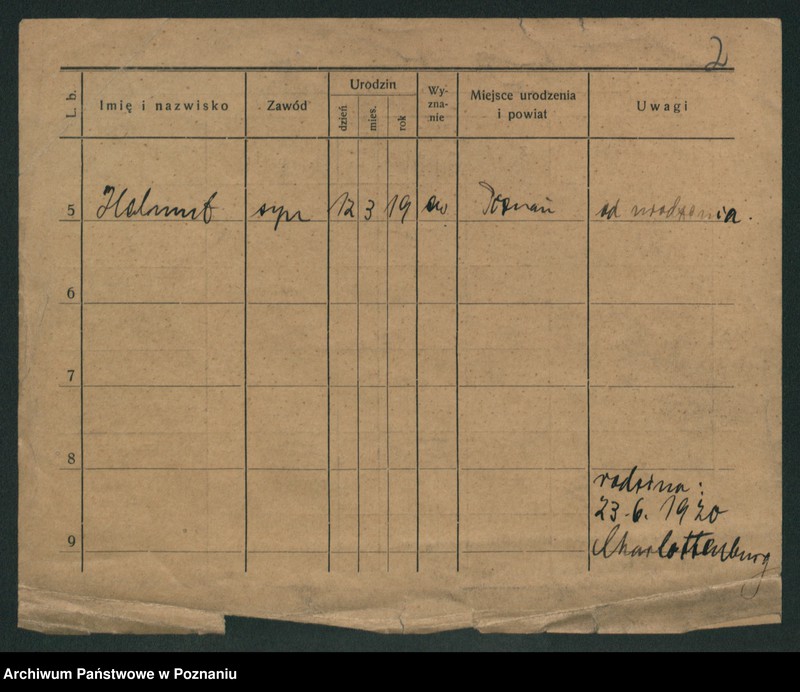 2
L. b. Imię i nazwisko Zawód Urodzin dzień mies. rok Wy-zna-nie Miejsce urodzenia i powiat Uwagi
5 Helmut syn 12 3 19 ew Poznań od urodzenia.
6
7
8
rodzina:
23.6. 1920
9 Charlottenburg
Archiwum Państwowe w Poznaniu